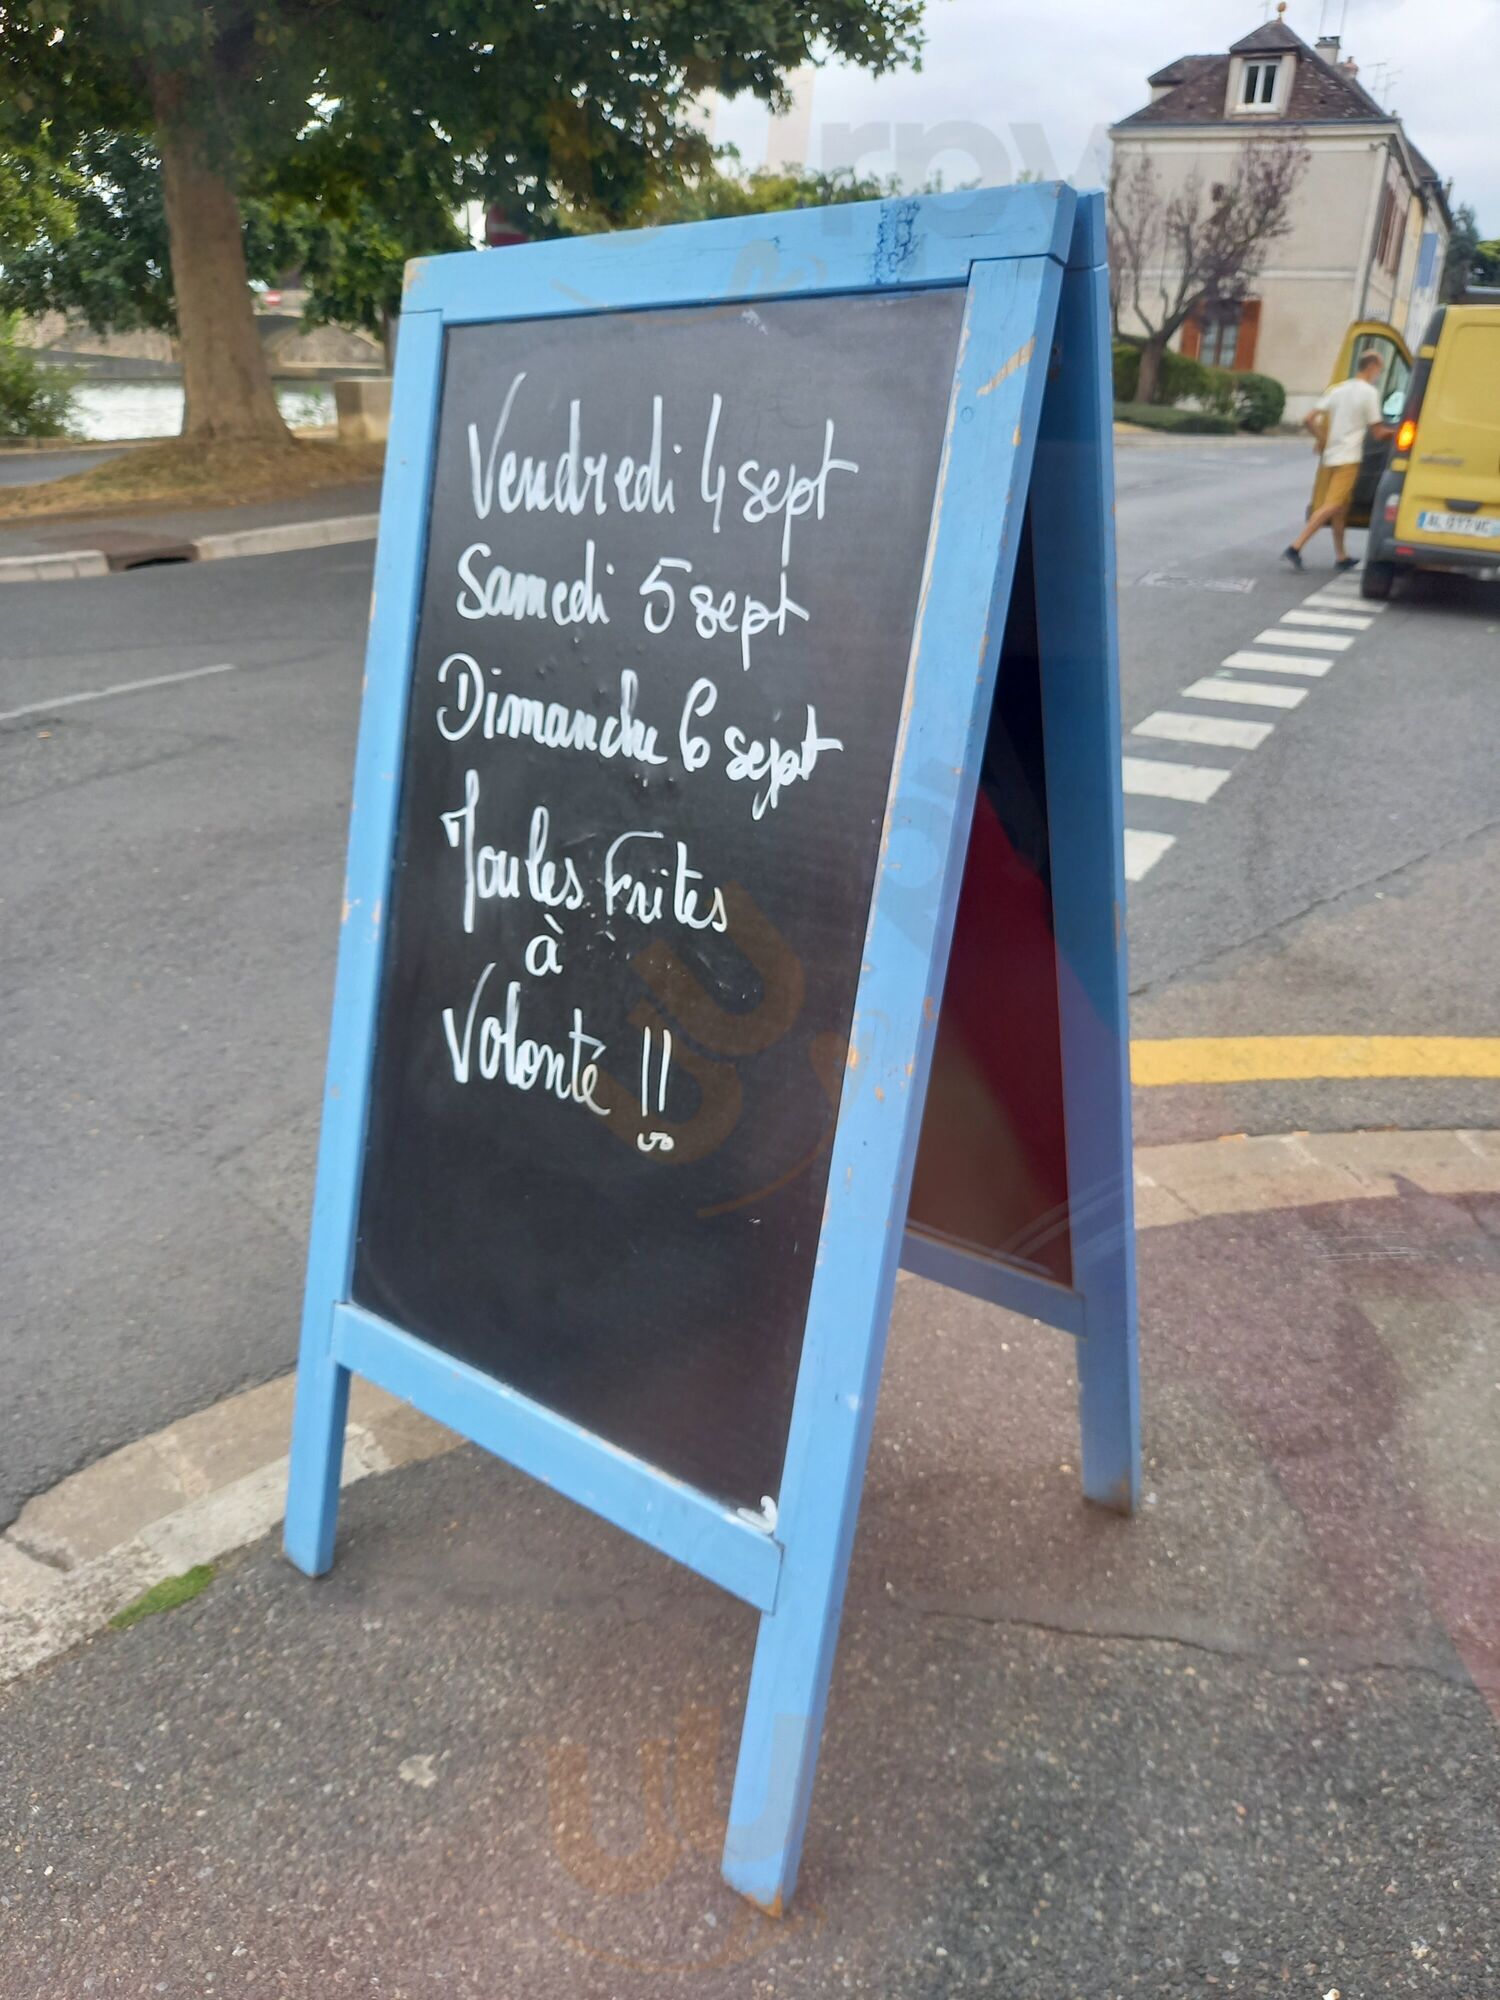 Vendredi 4 sept
Samedi 5 sept
Dimanche 6 sept
Moules Frites
à
Volonté !!